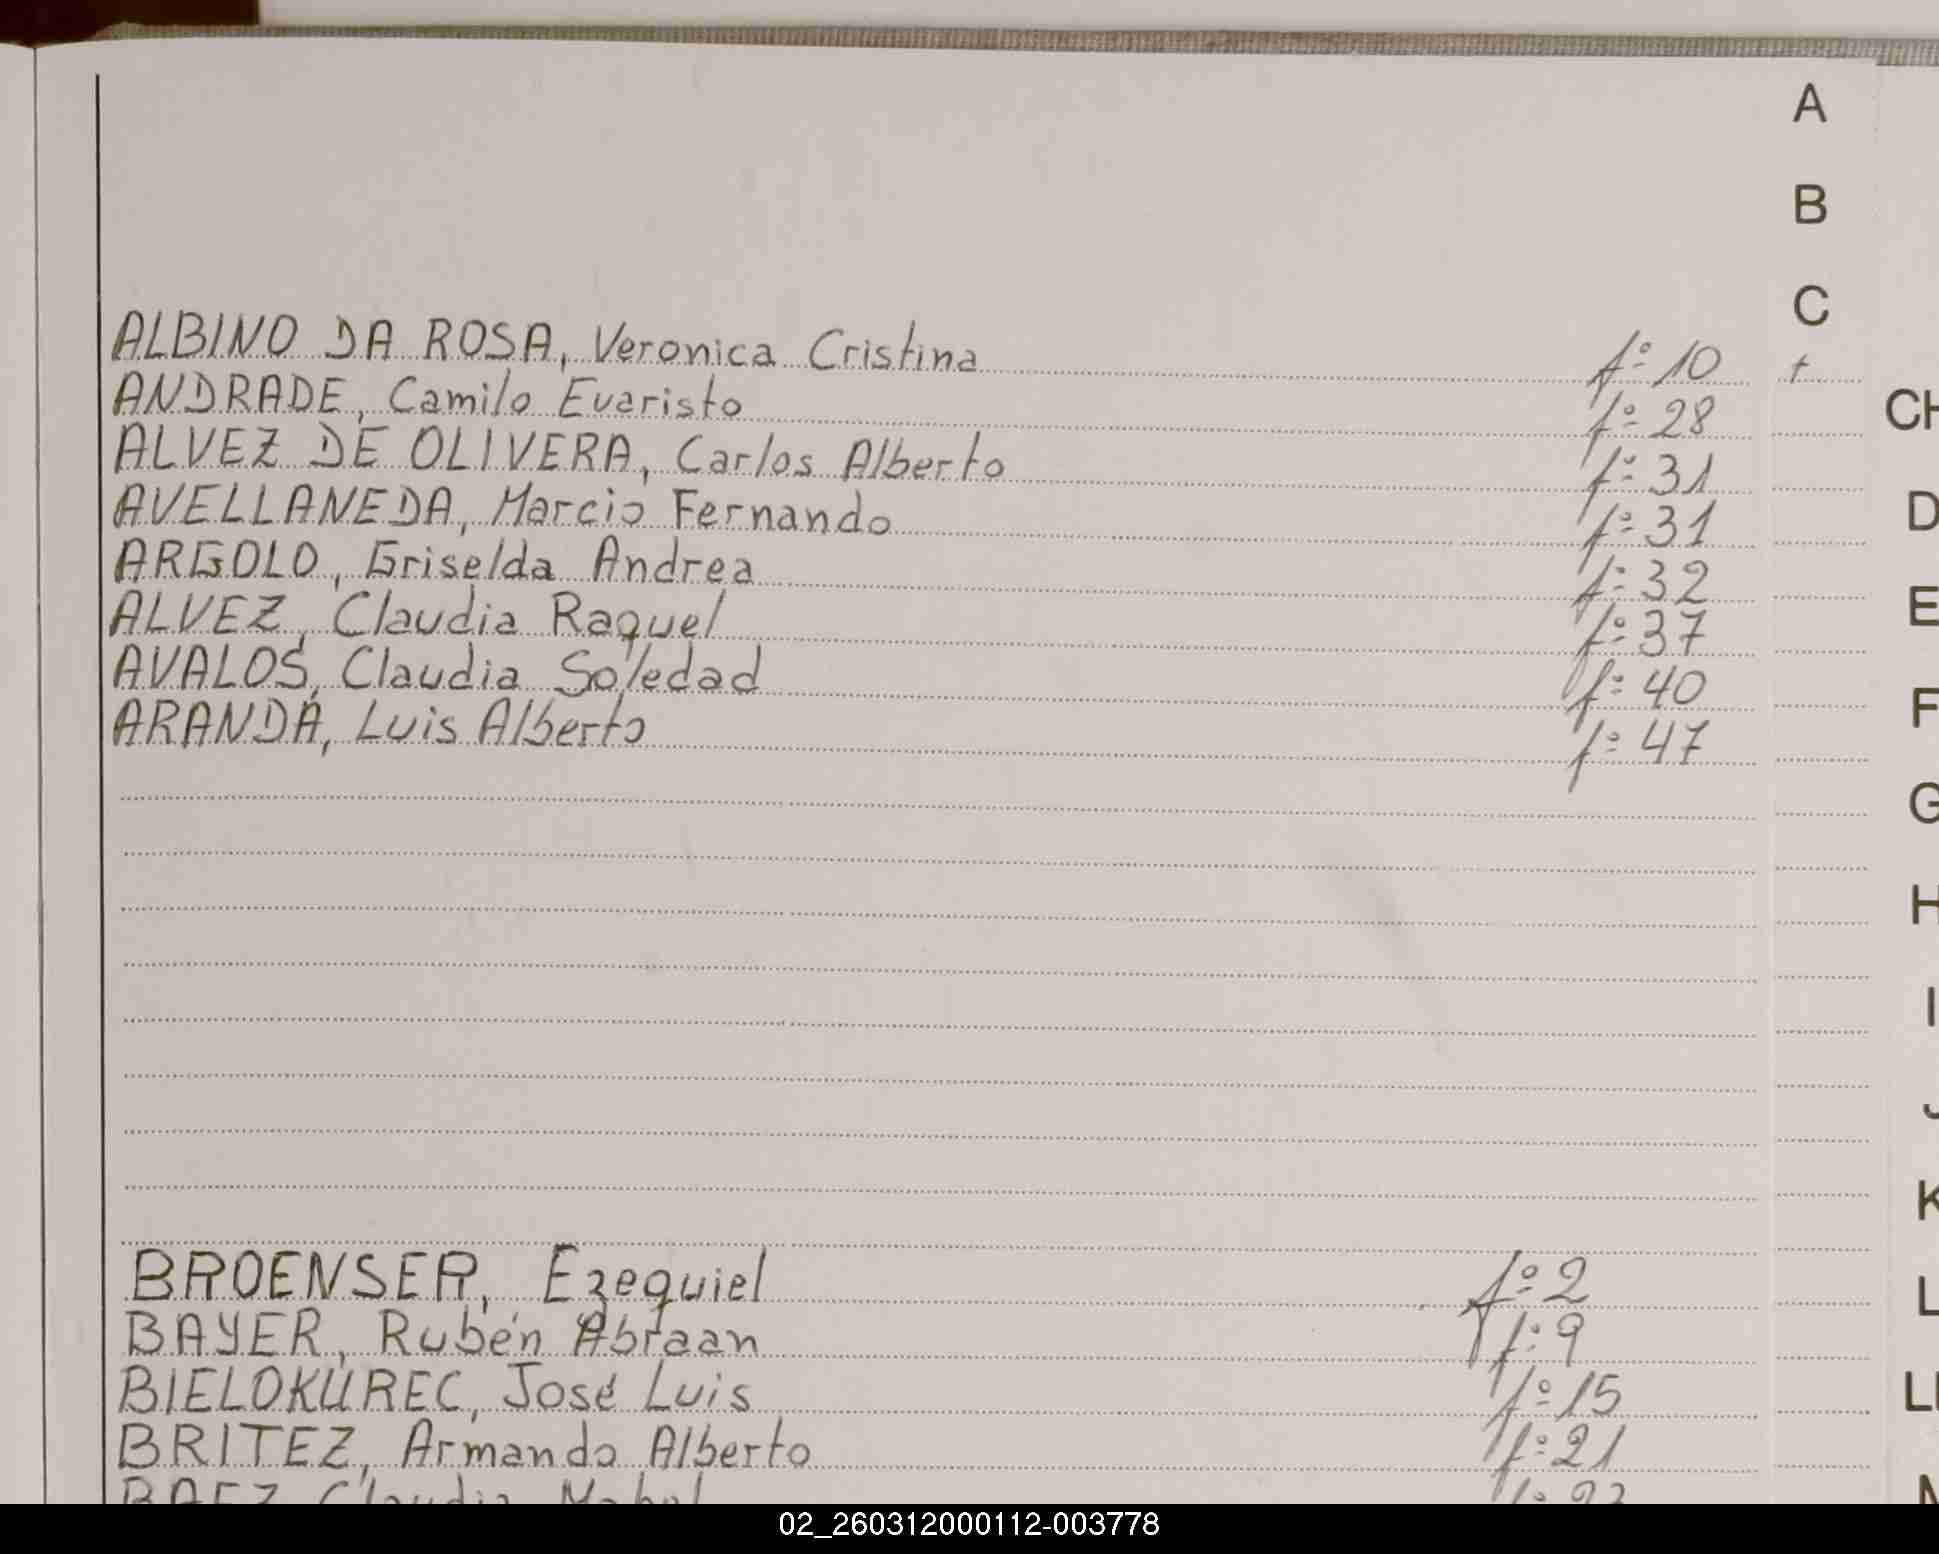 A
B
C
ALBINO DA ROSA, Veronica Cristina f:º 10
ANDRADE, Camilo Evaristo f:º 28
CH
ALVEZ DE OLIVERA, Carlos Alberto f:º 31
AVELLANEDA, Marcio Fernando f:º 31
D
ARGOLO, Griselda Andrea f:º 32
E
ALVEZ, Claudia Raquel f:º 37
AVALOS, Claudia Soledad f:º 40
F
ARANDA, Luis Alberto f:º 47
G
H
I
J
K
BROENSER, Ezequiel f:º 2
L
BAYER, Rubén Abraan f:º 9
BIELOKUREC, José Luis f:º 15
LL
BRITEZ, Armando Alberto f:º 21
BAEZ Claudia Mabel
M
02_260312000112-003778